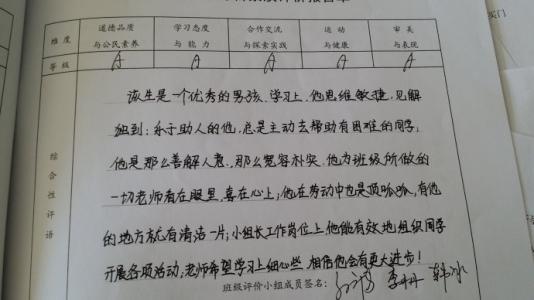 维度 道德品质与公民素养 学习态度与能力 合作交流与探索实践 运动与健康 审美与表现
等级 A A A A A
综合性评语
该生是一个优秀的男孩,学习上,他思维敏捷,见解
独到;乐于助人的他,总是主动去帮助有困难的同学;
他是那么善解人意,那么宽容朴实,他为班级所做的
一切老师看在眼里,喜在心上;他在劳动中也是顶呱呱,有他
的地方就有清洁一片;小组长工作岗位上他能有效地组织同学
开展各项活动;老师希望学习上细心些,相信他会有更大进步!
班级评价小组成员签名:
买门